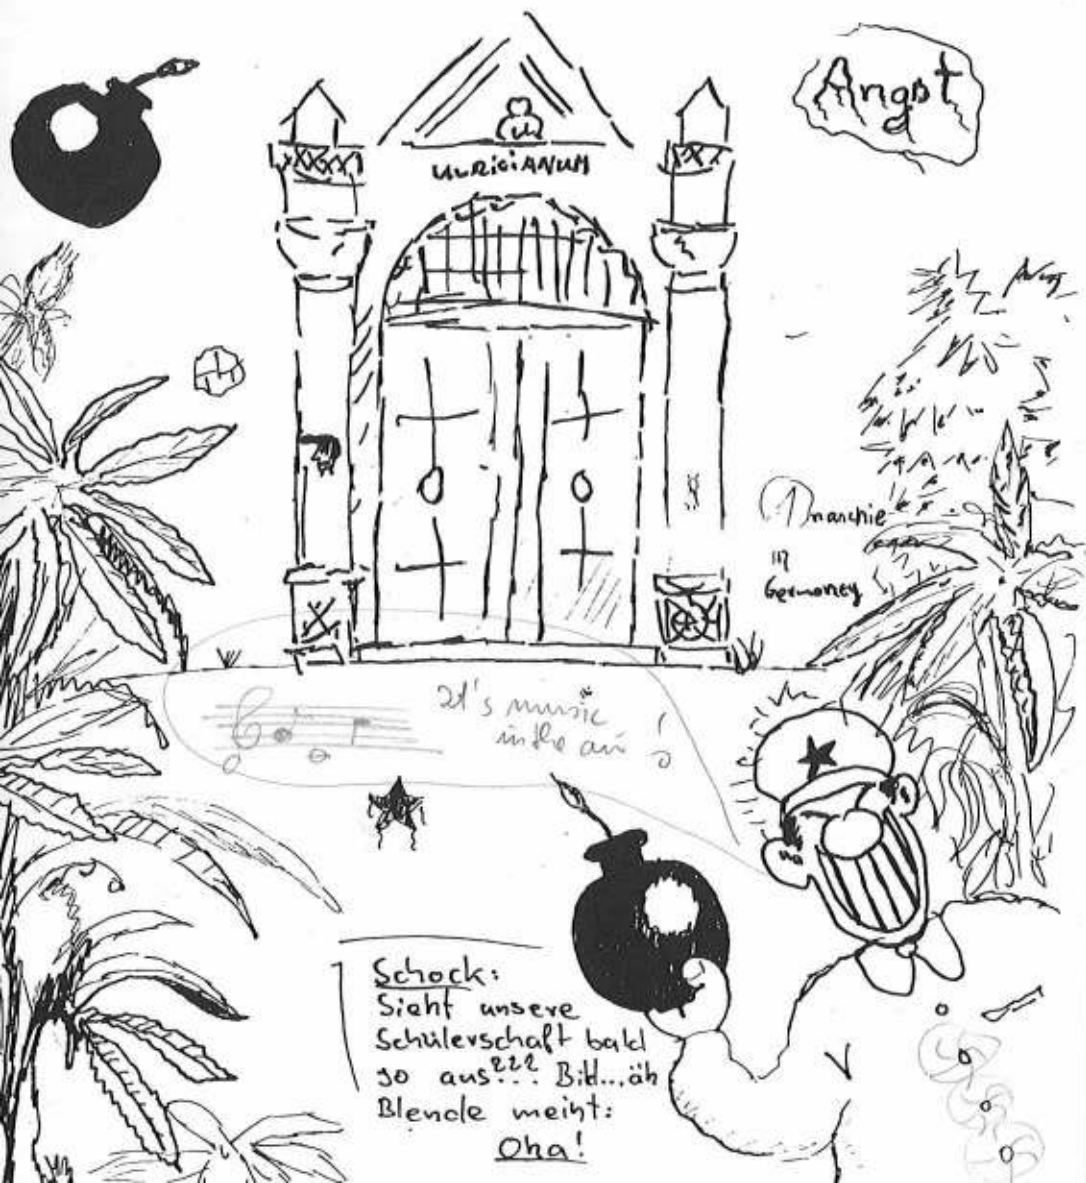 Angst
ULRICIANUM
Anarchie
in
Germoney
It's music
in the air
Schock:
Sieht unsere
Schülerschaft bald
so aus??? Bild...äh
Blende meint:
Oha!